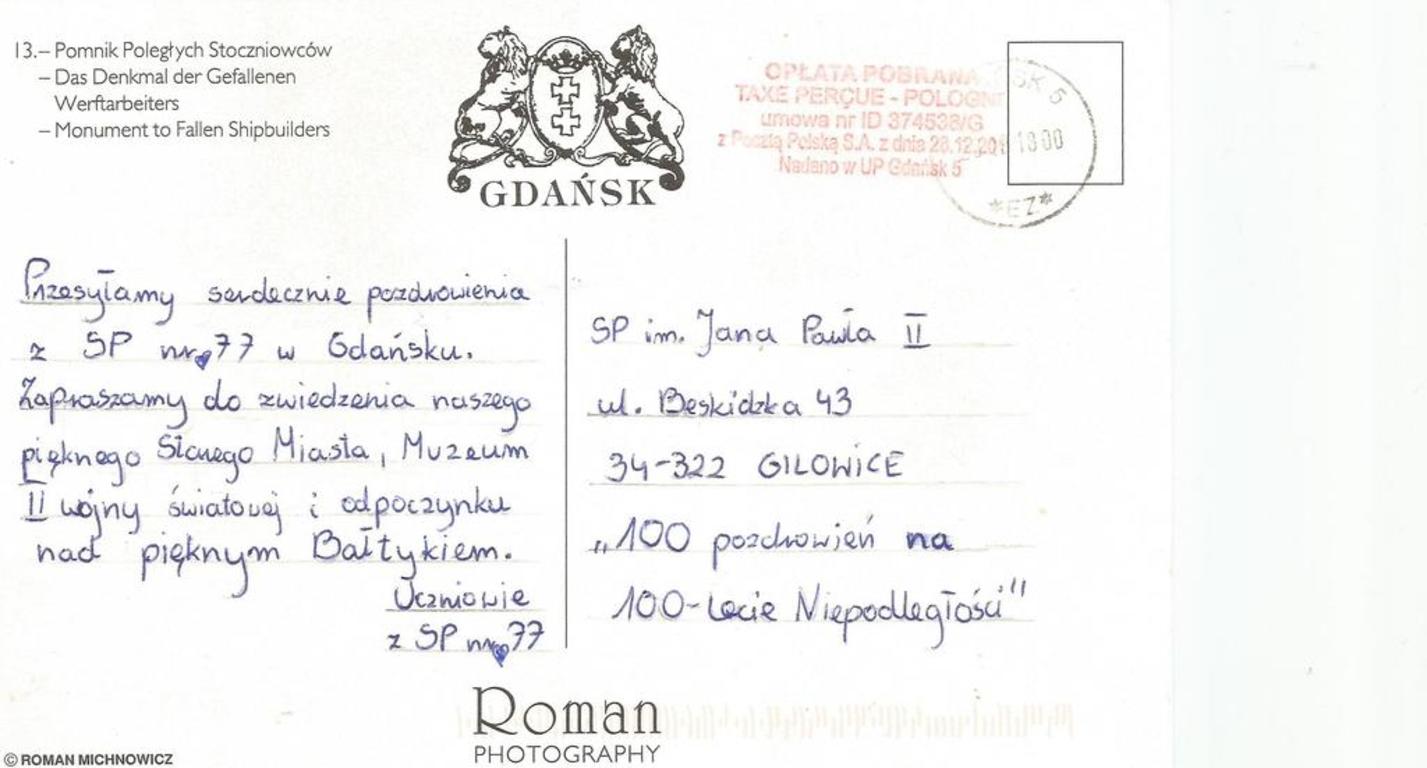 13.– Pomnik Poległych Stoczniowców
– Das Denkmal der Gefallenen
Werftarbeiters
– Monument to Fallen Shipbuilders
GDAŃSK
OPŁATA POBRANA
TAXE PERÇUE - POLOGNE
umowa nr ID 374538/G
z Pocztą Polską S.A. z dnia 28.12.201
Nadano w UP Gdańsk 5
SK 5
18 00
*EZ*
Przesyłamy serdecznie pozdrowienia
z SP nr 77 w Gdańsku.
Zapraszamy do zwiedzenia naszego
pięknego Starego Miasta, Muzeum
II wojny światowej i odpoczynku
nad pięknym Bałtykiem.
Uczniowie
z SP nr 77
SP im. Jana Pawła II
ul. Beskidzka 43
34-322 GILOWICE
„100 pozdrowień na
100-lecie Niepodległości"
Roman
PHOTOGRAPHY
© ROMAN MICHNOWICZ